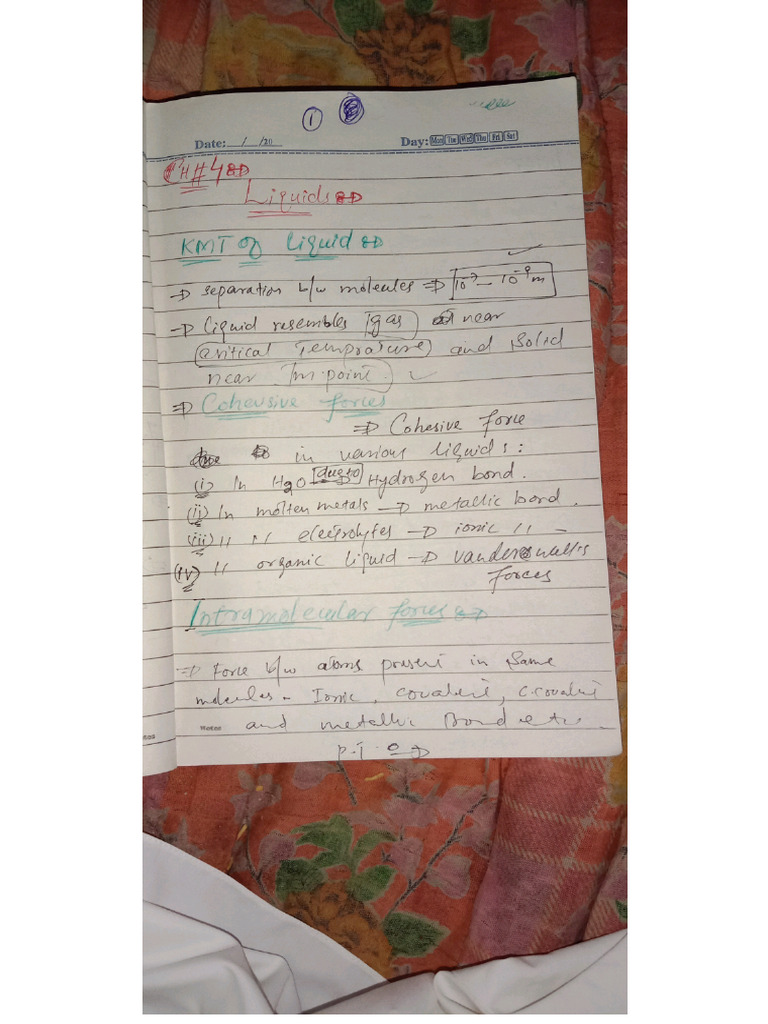 1
Date: / /20 Day: Mon Tue Wed Thu Fri Sat
CH#4
Liquids
KMT of liquid
→ separation b/w molecules ⇒ 10⁻⁷ – 10⁻⁹m
→ liquid resembles gas near
critical Temprature and Solid
near Tm.point
⇒ Cohensive forces
⇒ Cohesive force
in various liquids:
(i) In H₂O due to → Hydrogen bond.
(ii) In molten metals → metallic bond.
(iii) '' '' electrolytes → ionic '' –
(iv) '' organic liquid → vander walls
forces
Intramolecular forces
⇒ Force b/w atoms present in Same
molecules. Ionic, covalent, c.covalent
Notes and metallic Bond etc.
P.T.O →